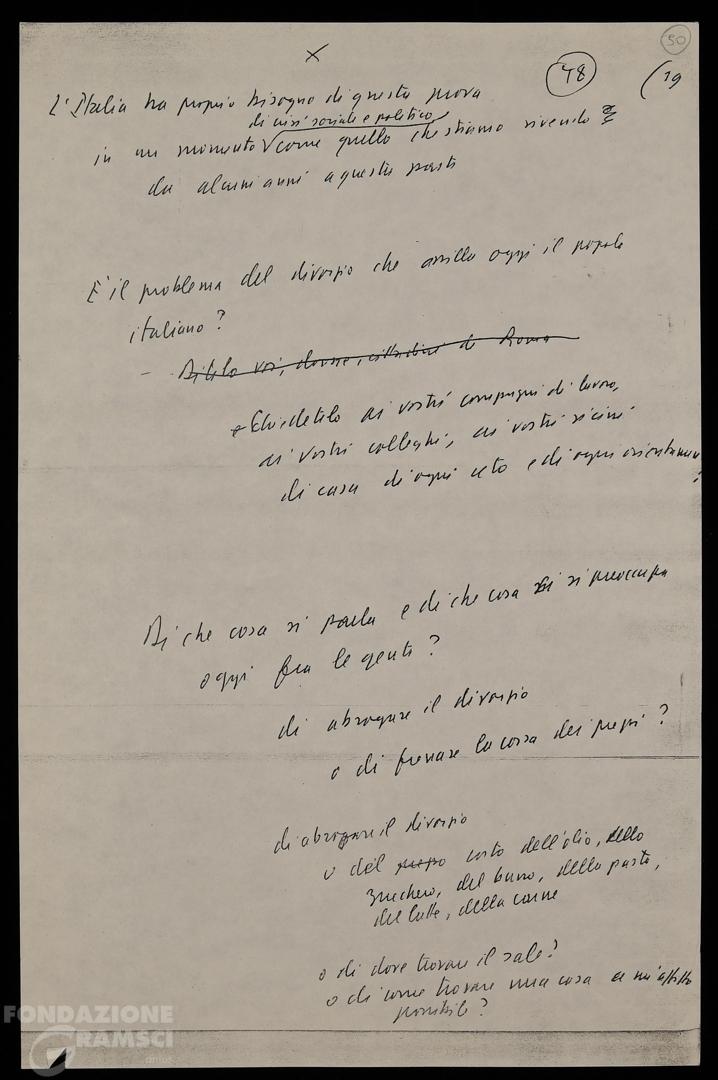 50
48
(19
x
L'Italia ha proprio bisogno di questa prova
di crisi sociale e politico
in un momento come quello che stiamo vivendo
da alcuni anni a questa parte
E' il problema del divorzio che assilla oggi il popolo
italiano?
- Ditelo voi, donne, cittadini di Roma
Chiedetelo ai vostri compagni di lavoro,
ai vostri colleghi, ai vostri vicini
di casa di ogni ceto e di ogni orientamen
?
Di che cosa si parla e di che cosa si preoccupa
oggi fra le gente?
di abrogare il divorzio
o di frenare la corsa dei prezzi?
di abrogare il divorzio
o del prezzo costo dell'olio, dello
zucchero, del burro, della pasta,
del latte, della carne
o di dove trovare il sale?
o di come trovare una casa a un affitto
possibile?
FONDAZIONE
GRAMSCI